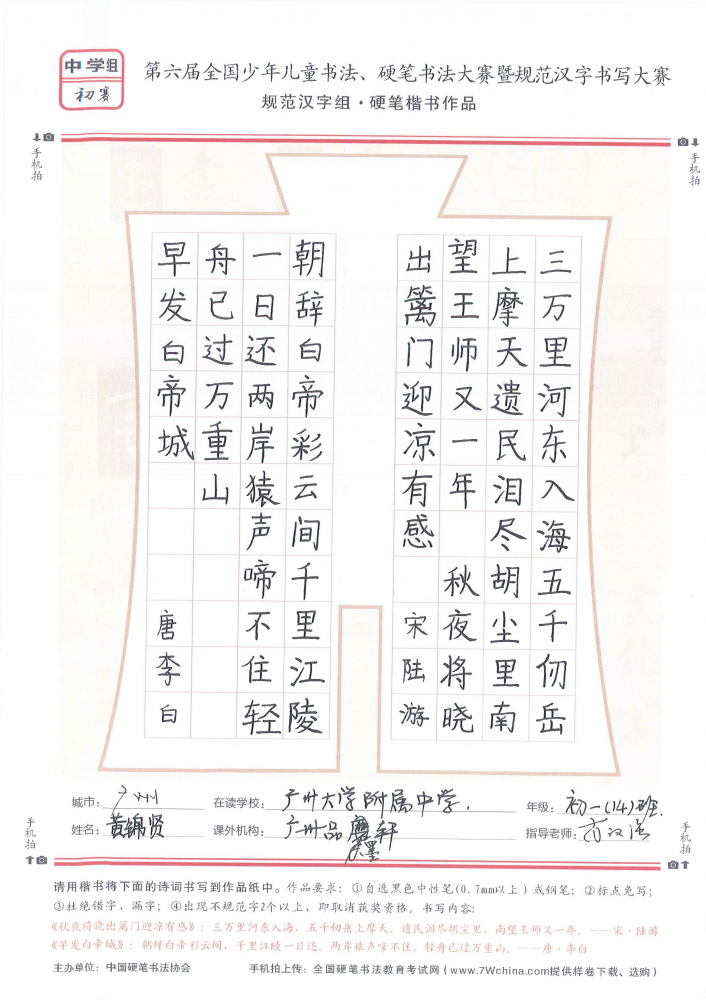 中学组
初赛
第六届全国少年儿童书法、硬笔书法大赛暨规范汉字书写大赛
规范汉字组·硬笔楷书作品
手机拍
手机拍
三万里河东入海五千仞岳
上摩天遗民泪尽胡尘里南
望王师又一年 秋夜将晓
出篱门迎凉有感 宋陆游
朝辞白帝彩云间千里江陵
一日还两岸猿声啼不住轻
舟已过万重山
早发白帝城 唐李白
城市：广州 在读学校：广州大学附属中学. 年级：初一(14)班.
姓名：黄锦贤 课外机构：广州品墨轩 指导老师：
手机拍
手机拍
请用楷书将下面的诗词书写到作品纸中。作品要求：①自选黑色中性笔(0.7mm以上)或钢笔；②标点免写；
③杜绝错字、漏字；④出现不规范字2个以上，即取消获奖资格。书写内容：
《秋夜将晓出篱门迎凉有感》：三万里河东入海，五千仞岳上摩天。遗民泪尽胡尘里，南望王师又一年。——宋·陆游
《早发白帝城》：朝辞白帝彩云间，千里江陵一日还。两岸猿声啼不住，轻舟已过万重山。——唐·李白
主办单位：中国硬笔书法协会 手机拍上传：全国硬笔书法教育考试网（www.7Wchina.com提供样卷下载、选购）